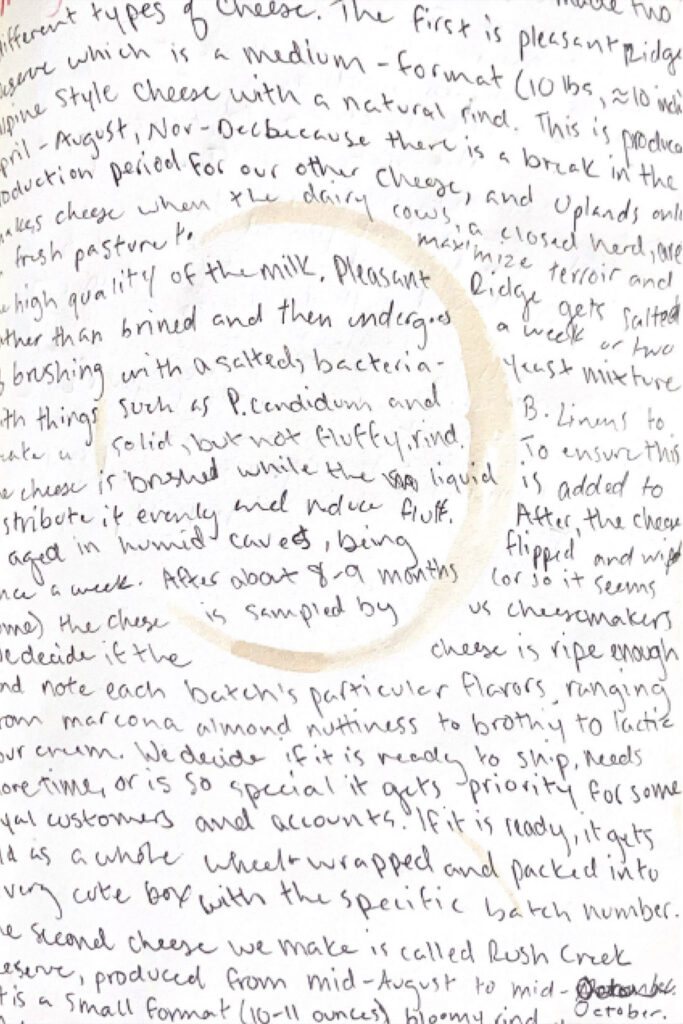 made two
different types of cheese. The first is pleasant Ridge
eserve which is a medium-format (10 lbs, ≈10 inch
lpine style cheese with a natural rind. This is produce
pril-August, Nov-Dec because there is a break in the
oduction period for our other cheese, and Uplands onl
makes cheese when the dairy cows, a closed herd, are
fresh pasture t. maximize terroir and
e high quality of the milk. Pleasant Ridge gets salted
ather than brined and then undergoes a week or two
brushing with a salted, bacteria- yeast mixture
ith things such as P. candidum and B. Linens to
eate a solid, but not fluffy, rind. To ensure this
he cheese is brushed while the liquid is added to
stribute it evenly and reduce fluff. After, the cheese
aged in humid caves, being flipped and wiped
nce a week. After about 8-9 months (or so it seems
ome) the cheese is sampled by us cheesemakers
We decide if the cheese is ripe enough
nd note each batch's particular flavors, ranging
rom marcona almond nuttiness to brothy to lactic
our cream. We decide if it is ready to ship, needs
ore time, or is so special it gets priority for some
yal customers and accounts. If it is ready, it gets
ld as a whole wheel wrapped and packed into
very cute box with the specific batch number.
he second cheese we make is called Rush Creek
eserve, produced from mid-August to mid-
October.
t is a small format (10-11 ounces) bloomy rind